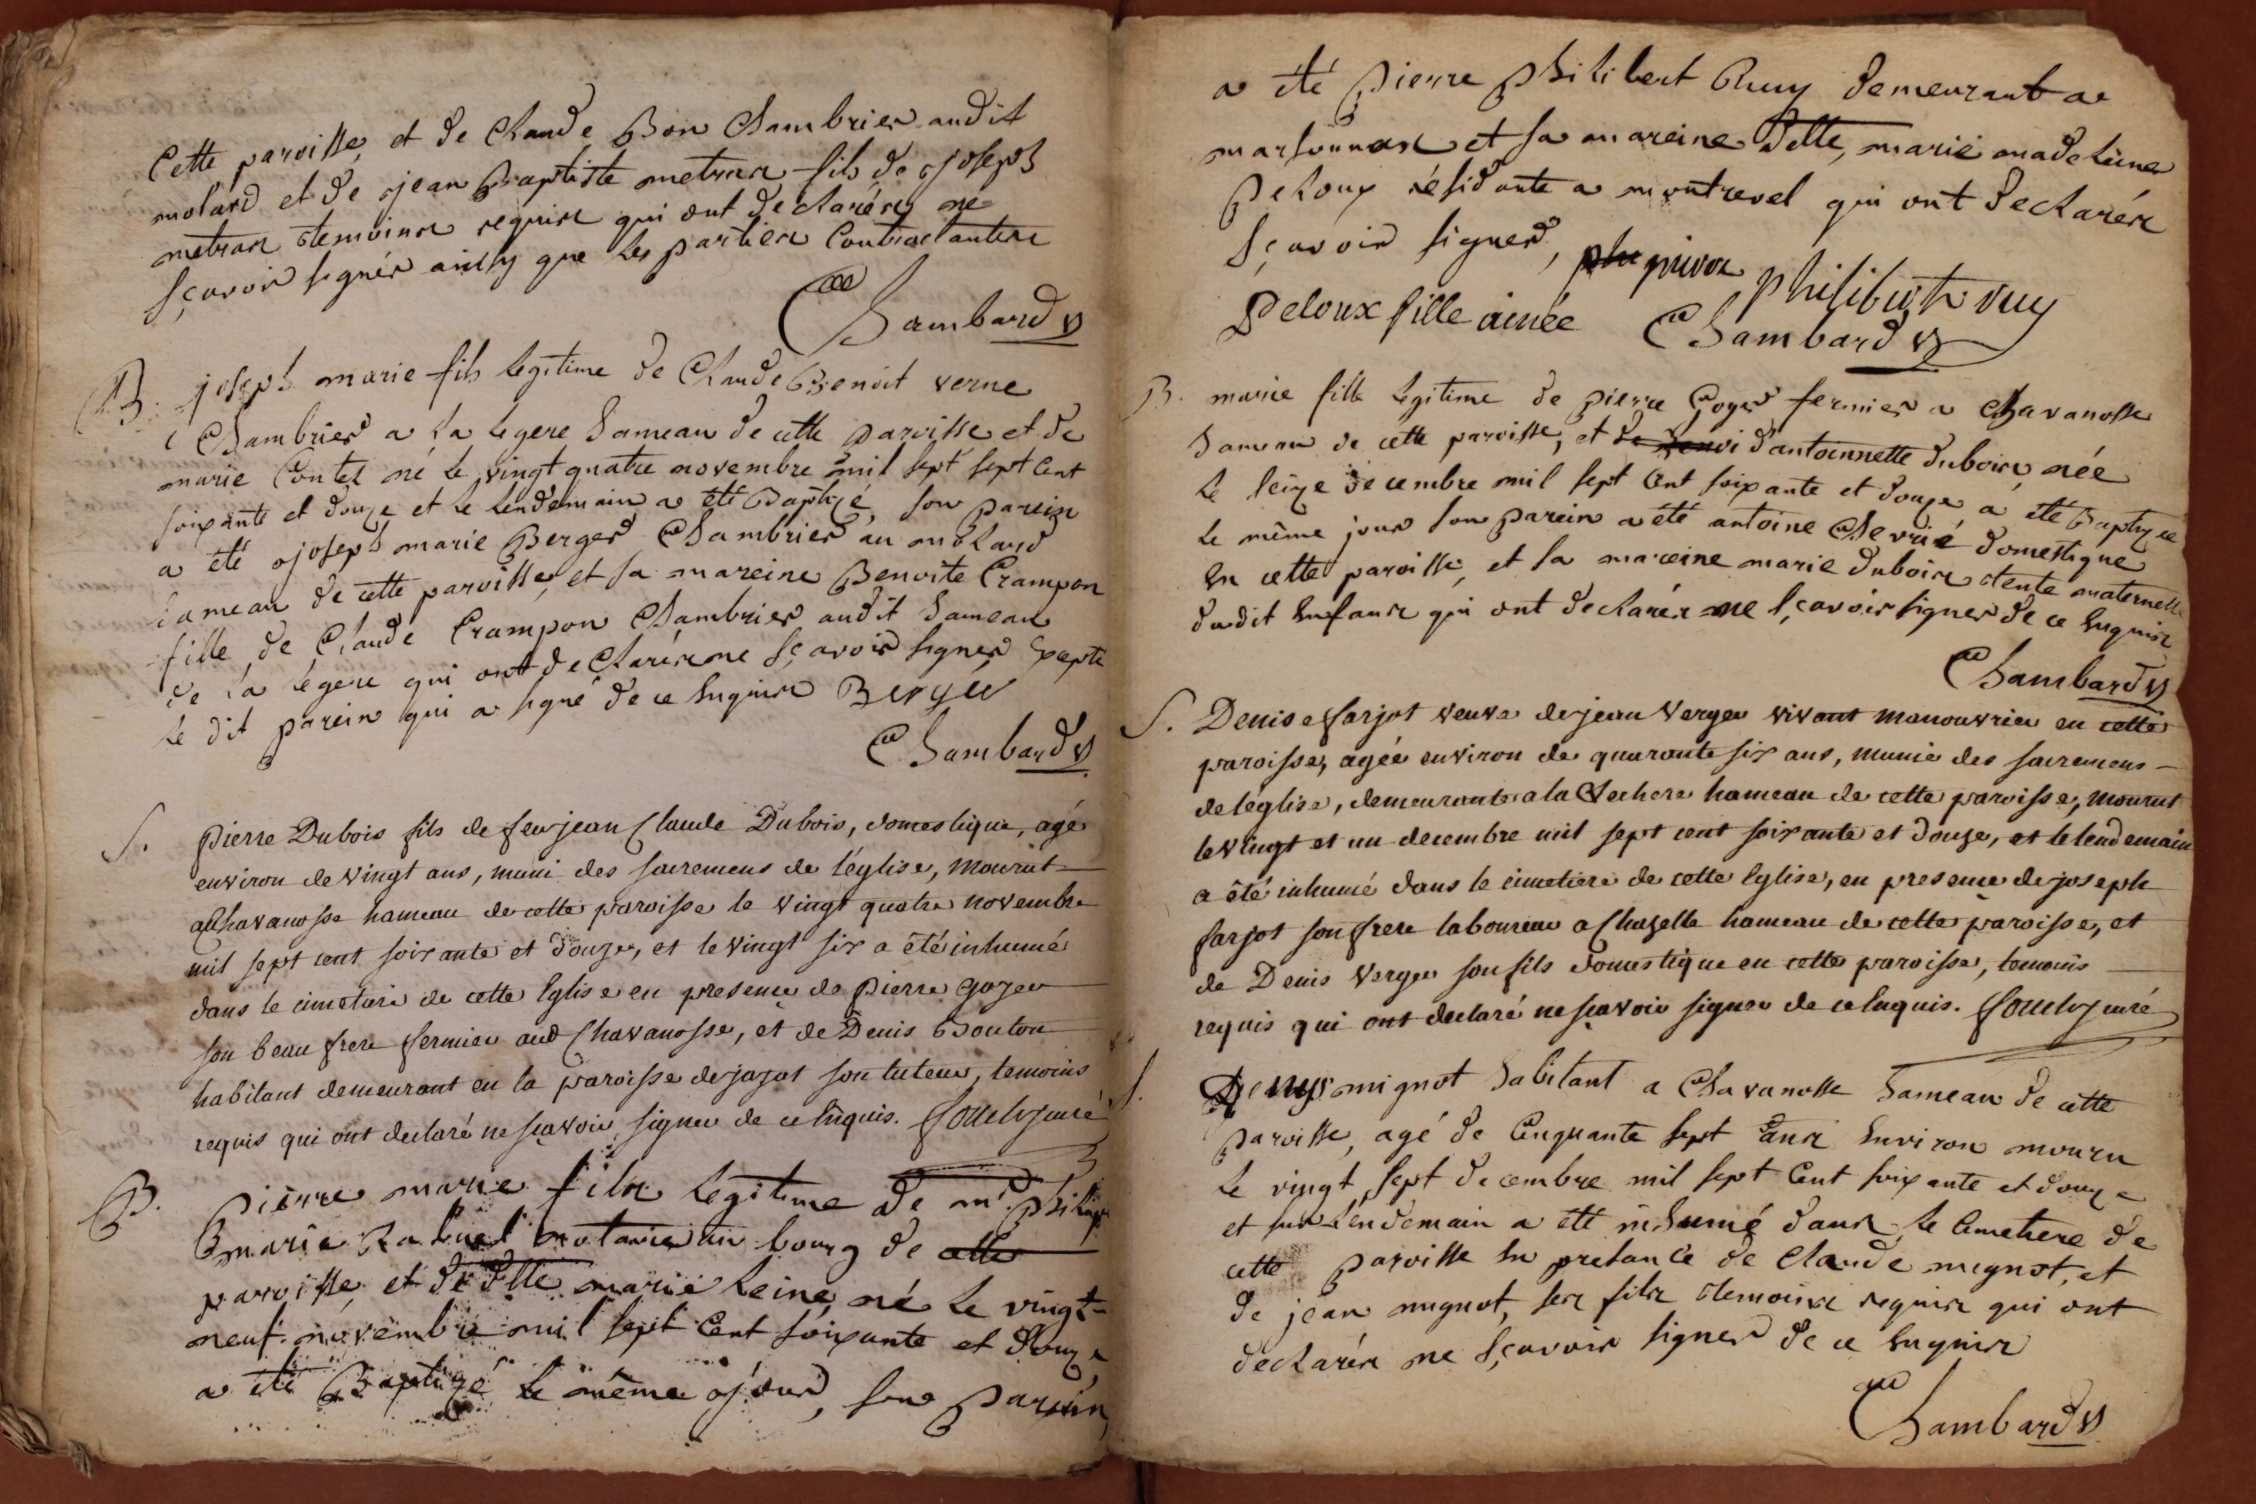 Cette paroisse, et de Claude Bon Chambrier audit
molard et de jean Baptiste metras fils de joseph
metras temoins requis qui ont declarés ne
sçavoir signér ainsy que les parties Contractantes
Chambard v
B. joseph marie fils legitime de Claude Benoit verne
Chambrier a la legere hameau de cette paroisse et de
marie Contet né le vingt quatre novembre mil sept sept Cent
soixante et douze et le lendemain a été Baptizé, son parein
a été joseph marie Berger Chambrier au molard
hameau de cette paroisse, et sa mareine Benoite Crampon
fille de Claude Crampon Chambrier audit hameau
de la legere qui ont declarés ne sçavoir signer Exepté
le dit parein qui a signé de ce Enquis Berger
Chambard v
S. Pierre Dubois fils de feu jean Claude Dubois, domestique, agé
environ de vingt ans, muni des sacremens de l'église, mourut
a Chavanosse hameau de cette paroisse le vingt quatre novembre
mil sept cent soixante et douze, et le vingt six a été inhumé
dans le cimetaire de cette Eglise en presence de Pierre goyer
son beau frere fermier aud Chavanosse, et de Denis Bouton
habitant demeurant en la paroisse de jayat son tuteur, temoins
requis qui ont declaré ne sçavoir signer de ce Enquis. curé
B. Pierre marie fils legitime de mr. philipe
marie notaire au bourg de cette
paroisse, et de dlle marie leine, né le vingt-
neuf novembre mil sept Cent soixante et douze
a été Baptizé le même jour, son parein,
a été Pierre philibert vuy demeurant a
marsonnas et sa mareine delle, marie madeleine
Peloux résidante a montrevel qui ont declarés
sçavoir signer,
Peloux fille ainée philibert vuy
Chambard v
B. marie fille legitime de pierre goyer fermier a Chavanosse
hameau de cette paroisse, et d'antoinnette dubois, née
le seize decembre mil sept Cent soixante et douze a été Baptizée
le même jour son parein a été antoine Chevrié domestique
En cette paroisse, et sa mareine marie dubois tente maternelle
dudit Enfans qui ont declarés ne sçavoir signer de ce Enquis
Chambard v
S. Denise farjot veuve de jean Verger vivant manouvrier en cette
paroisse, agée environ de quarante six ans, munie des sacremens
de l'église, demeurante a la Vechere hameau de cette paroisse, mourut
le vingt et un decembre mil sept cent soixante et douze, et le lendemain
a été inhumé dans le cimetiere de cette Eglise, en presence de joseph
farjot son frere laboureur a Chazelle hameau de cette paroisse, et
de Denis Verger son fils domestique en cette paroisse, temoins
requis qui ont declaré ne sçavoir signer de ce Enquis. curé
S. Denys mignot habitant a Chavanosse hameau de cette
paroisse, agé de Cinquante sept ans Environ mouru
le vingt sept decembre mil sept Cent soixante et douze
et son lendemain a été inhumé dans le Cimetiere de
cette paroisse En presance de Claude mignot, et
de jean mignot, ses fils temoins requis qui ont
declarés ne sçavoir signer de ce Enquis
Chambard v